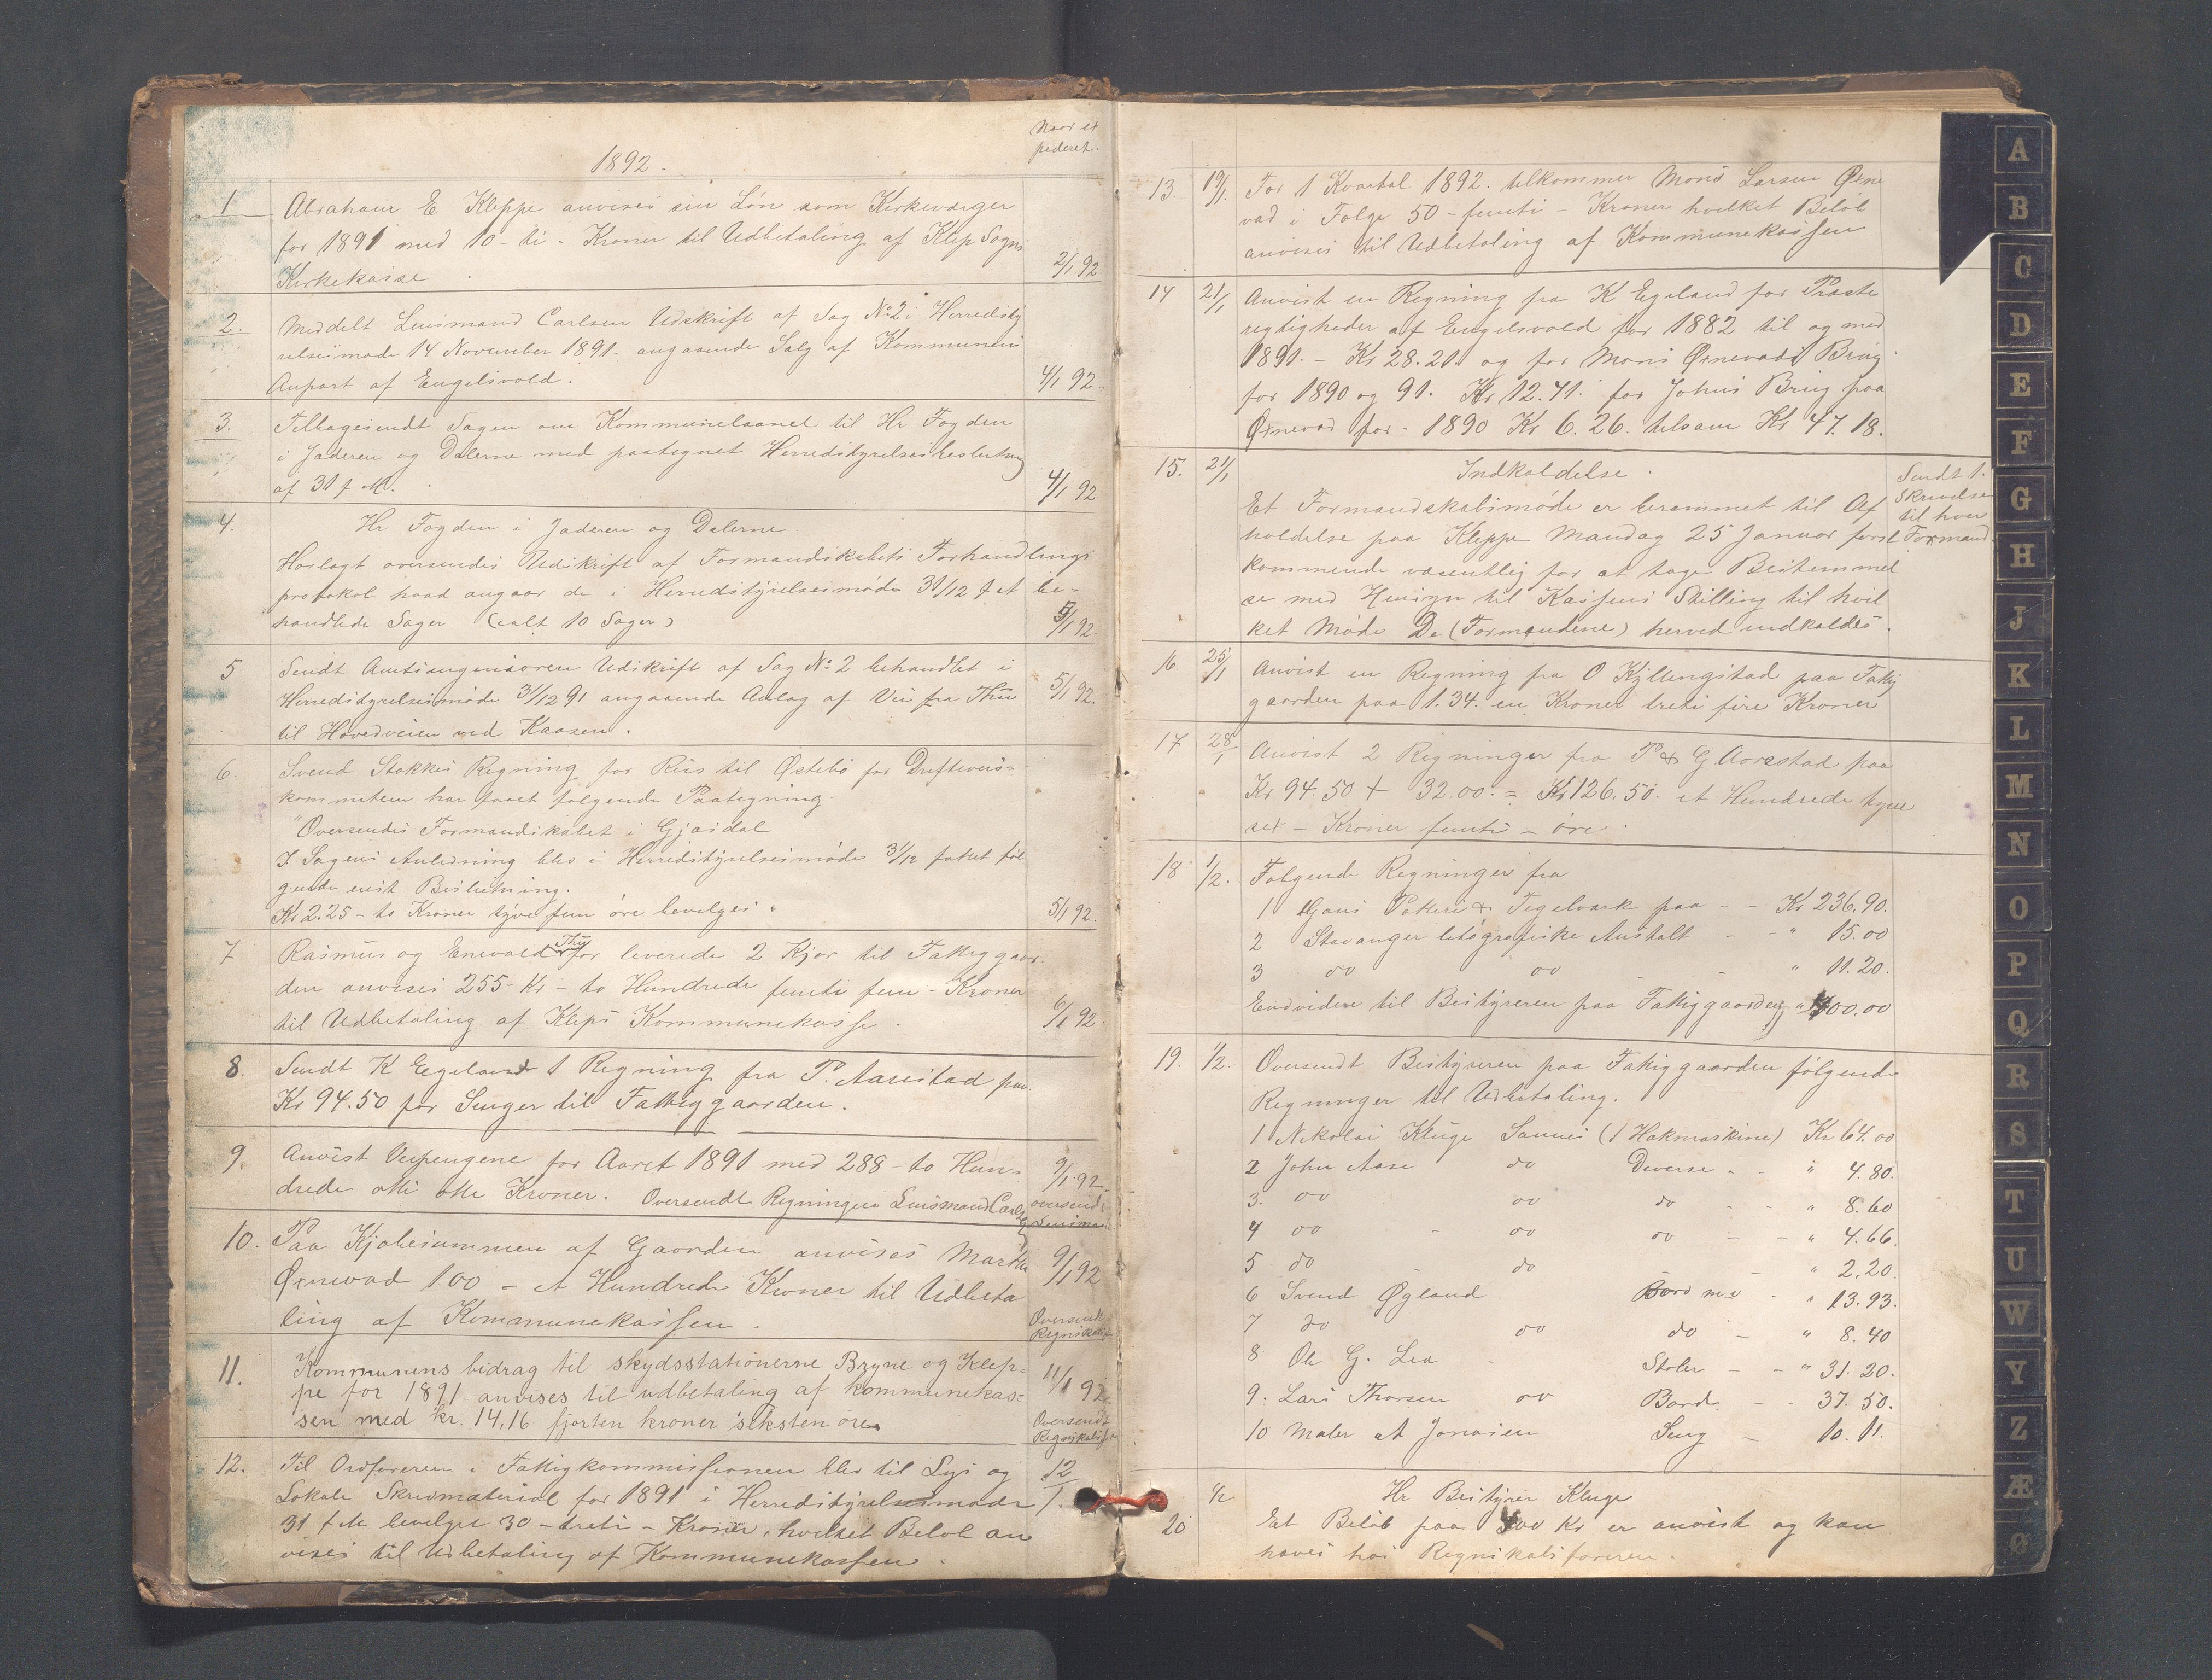 Naar ex
pederet.
1892.
1 Abraham E Kleppe anvises sin Løn som Kirkeværger
for 1891 med 10 - ti - Kroner til Udbetaling af Klep Sogns
Kirkekasse 2/1 92
2. Meddelt Lensmand Carlsen Udskrift af Sag No 2 i Herredsty
relsesmøde 14 November 1891. angaaende Salg af Kommunens
Anpart af Engelsvold. 4/1 92.
3. Tilbagesendt Sagen om Kommunelaanet til Hr Fogden
i Jæderen og Dalerne med paategnet Herredstyrelsesbeslutning
af 31 f. M. 4/1 92
4. Hr Fogden i Jæderen og Dalerne.
Hoslagt oversendes Udskrift af Formandskabets Forhandlings
protokol hvad angaar de i Herredstyrelsesmøde 31/12 f. A be-
handlede Sager (ialt 10 Sager) 5/1 92.
5 Sendt Amtsingeniøren Udskrift af Sag No 2 behandlet i
Herredstyrelsesmøde 31/12 91 angaaende Anlæg af Vei fra Thu
til Hovedveien ved Kaasen. 5/1 92.
6. Svend Stokkes Regning for Reis til Østebø for Driftveis-
kommiteen har faaet følgende Paategning.
"Oversendes Formandskabet i Gjæsdal
I Sagens Anledning blev i Herredstyrelsesmøde 31/12 fattet føl
gende enst. Beslutning.
Kr 2.25 - to Kroner tyve fem øre bevilges. 5/1 92.
7 Rasmus og Enevald Thu for leverede 2 Kjør til Fattiggaar-
den anvises 255 - Kr - to Hundrede femti fem - Kroner
til Udbetaling af Kleps Kommunekasse. 6/1 92.
8. Sendt K Egeland 1 Regning fra P. Aarestad paa
Kr 94.50 for Senger til Fattiggaarden.
9. Anvist Veipengene for Aaret 1891 med 288 - to Hun-
drede otti otte Kroner. Oversendt Regningen Lensmand Carlsen
9/1 92. oversendt Lensman
10. Paa Kjøbesummen af Gaarden anvises Martha
Ørnevad 100 - et Hundrede Kroner til Udbeta
ling af Kommunekassen. 9/1 92
Oversendt
Regnskabsf
11. Kommunens bidrag til skydsstationerne Bryne og Klep-
pe for 1891 anvises til udbetaling af kommunekas-
sen med kr. 14,16 fjorten kroner seksten øre. 11/1 92
Oversendt
Regnskabsf
12. Til Ordføreren i Fattigkommissionen blev til Lys og
Lokale Skrivmaterial for 1891 i Herredstyrelsesmøde
31 f. M bevilget 30 - treti - Kroner, hvilket Beløb an
vises til Udbetaling af Kommunekassen. 12/1.
13. 19/1. For 1 Kvartal 1892. tilkommer Mons Larsen Ørne
vad i Følge 50 - femti - Kroner hvilket Beløb
anvises til Udbetaling af Kommunekassen
14 21/1 Anvist en Regning fra K Egeland for Præste
regtigheder af Engelsvold for 1882 til og med
1891. - Kr 28.21. og for Mons Ørnevads Brug
for 1890 og 91. Kr 12.71. for Johns Brug paa
Ørnevad for 1890 Kr 6.26. tilsam Kr 47.18.
15. 21/1 Indkaldelse.
Et Formandskabsmøde er berammet til Af
holdelse paa Kleppe Mandag 25 Januar først
kommende væsentlig for at tage Bestemmel
se med Hensyn til Kassens Stilling til hvil
ket Møde De (Formændene) herved indkaldes.
Sendt 1.
Skrivelse
til hver
Formand
16 25/1 Anvist en Regning fra O Kyllingstad paa Fattig
gaarden paa 1.34. en Kroner treti fire Kroner
17 28/1 Anvist 2 Regninger fra P & G. Aarestad paa
Kr 94.50 + 32.00. = Kr 126.50. et Hundrede tyve
sex - Kroner femti - øre.
18 1/2. Følgende Regninger fra
1 Gans Potteri & Tegelværk paa - - Kr 236.90.
2 Stavanger litografiske Anstalt - - " 15.00
3 do do - - " 11.20.
Endvidere til Bestyreren paa Fattiggaarden " 400.00
19. 1/2. Oversendt Bestyreren paa Fattiggaarden følgende
Regninger til Udbetaling.
1 Nikolai Kluge Sannes (1 Hakmaskine) Kr 64.00
2 John Aase do Diverse - - " 4.80.
3. do do do - - " 8.60
4 do - do do - - " 4.66.
5 do do - - " 2.20.
6 Svend Øgland Bord m v - " 13.93.
7 do do do - " 8.40
8 Ole G. Lea - Stoler - - " 31.20.
9. Lars Thorsen do Bord - - 37.50.
10 Maler A Jonasen Seng - 10.11.
20 1/2 Hr Bestyrer Kluge
Et Beløb paa 400 Kr er anvist og kan
haves hos Regnskabsføreren.
A
B
C
D
E
F
G
H
J
K
L
M
N
O
P
Q
R
S
T
U
W
Y
Z
Æ
Ø